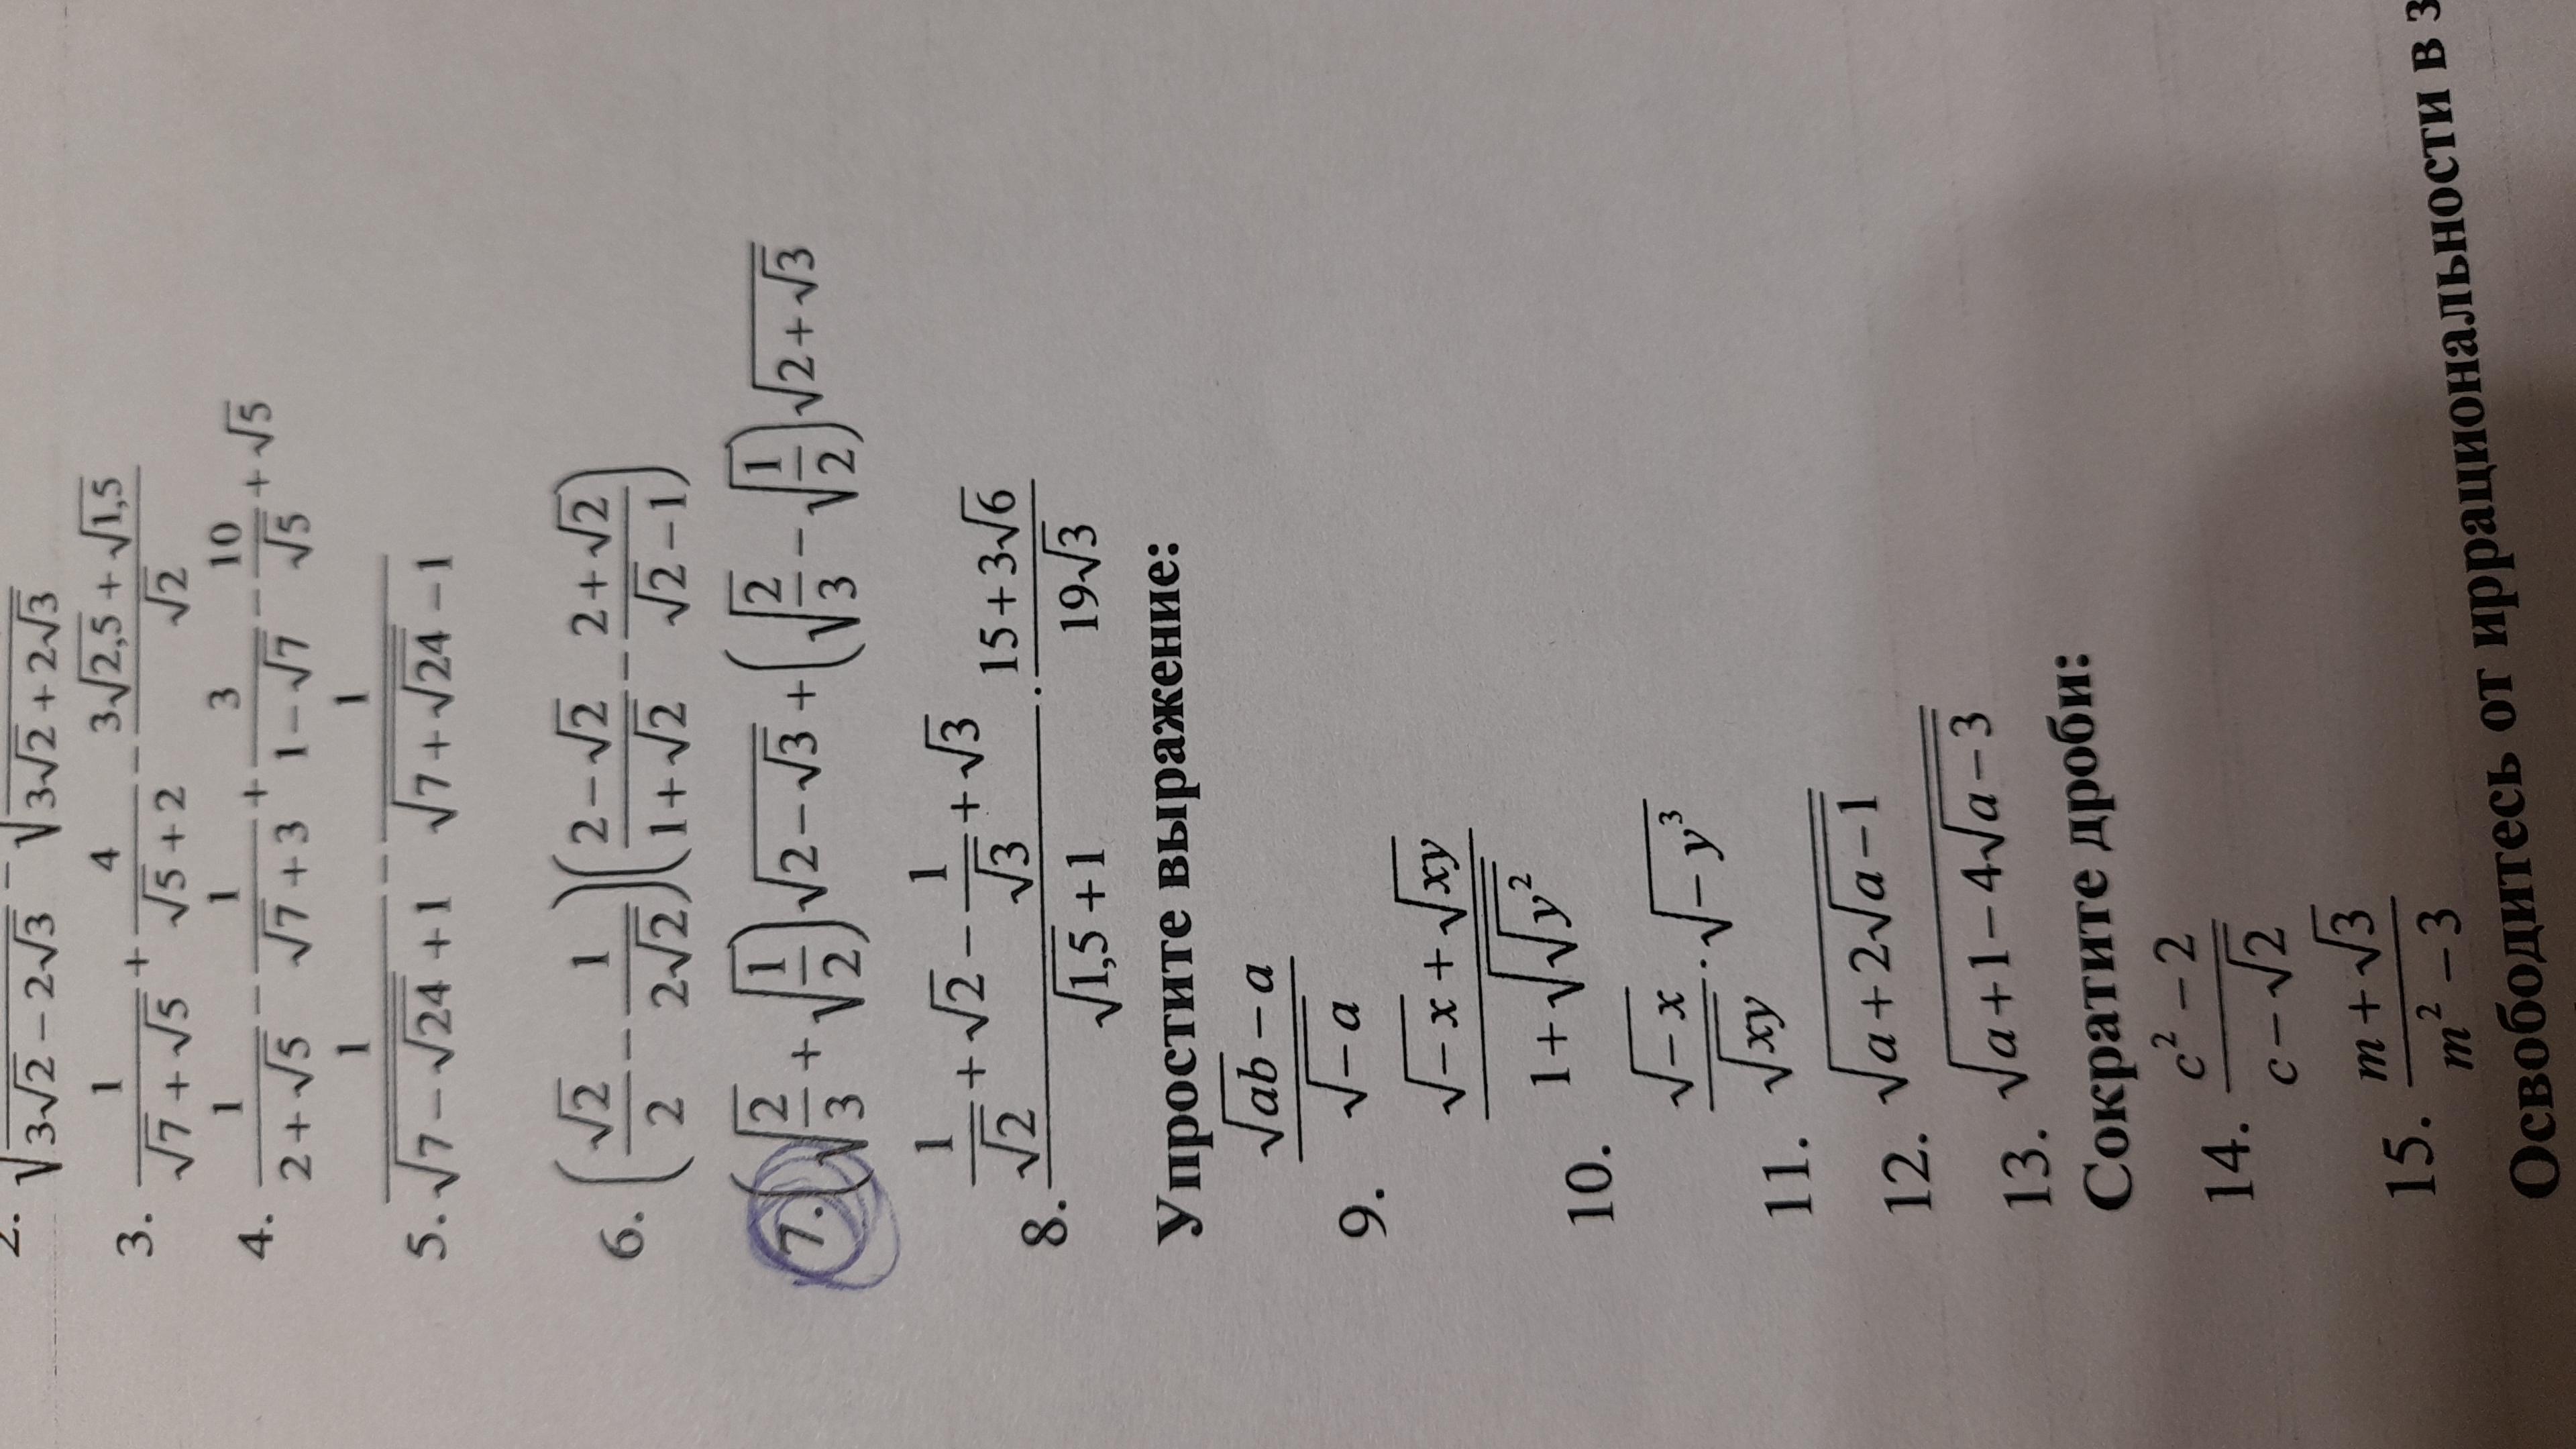 2. √(3√2 − 2√3) − √(3√2 + 2√3)
3. 1/(√7 + √5) + 4/(√5 + 2) − (3√2,5 + √1,5)/√2
4. 1/(2 + √5) − 1/(√7 + 3) + 3/(1 − √7) − 10/√5 + √5
5. 1/(√(7 − √24) + 1) − 1/(√(7 + √24) − 1)
6. (√2/2 − 1/(2√2))((2 − √2)/(1 + √2) − (2 + √2)/(√2 − 1))
7. (√(2/3) + √(1/2))√(2 − √3) + (√(2/3) − √(1/2))√(2 + √3)
8. (1/√2 + √2 − 1/√3 + √3)/(√1,5 + 1) · (15 + 3√6)/(19√3)
Упростите выражение:
9. (√ab − a)/√−a
10. (√−x + √xy)/(1 + √√y²)
11. √−x/√xy · √−y³
12. √(a + 2√(a − 1))
13. √(a + 1 − 4√(a − 3))
Сократите дроби:
14. (c² − 2)/(c − √2)
15. (m + √3)/(m² − 3)
Освободитесь от иррациональности в